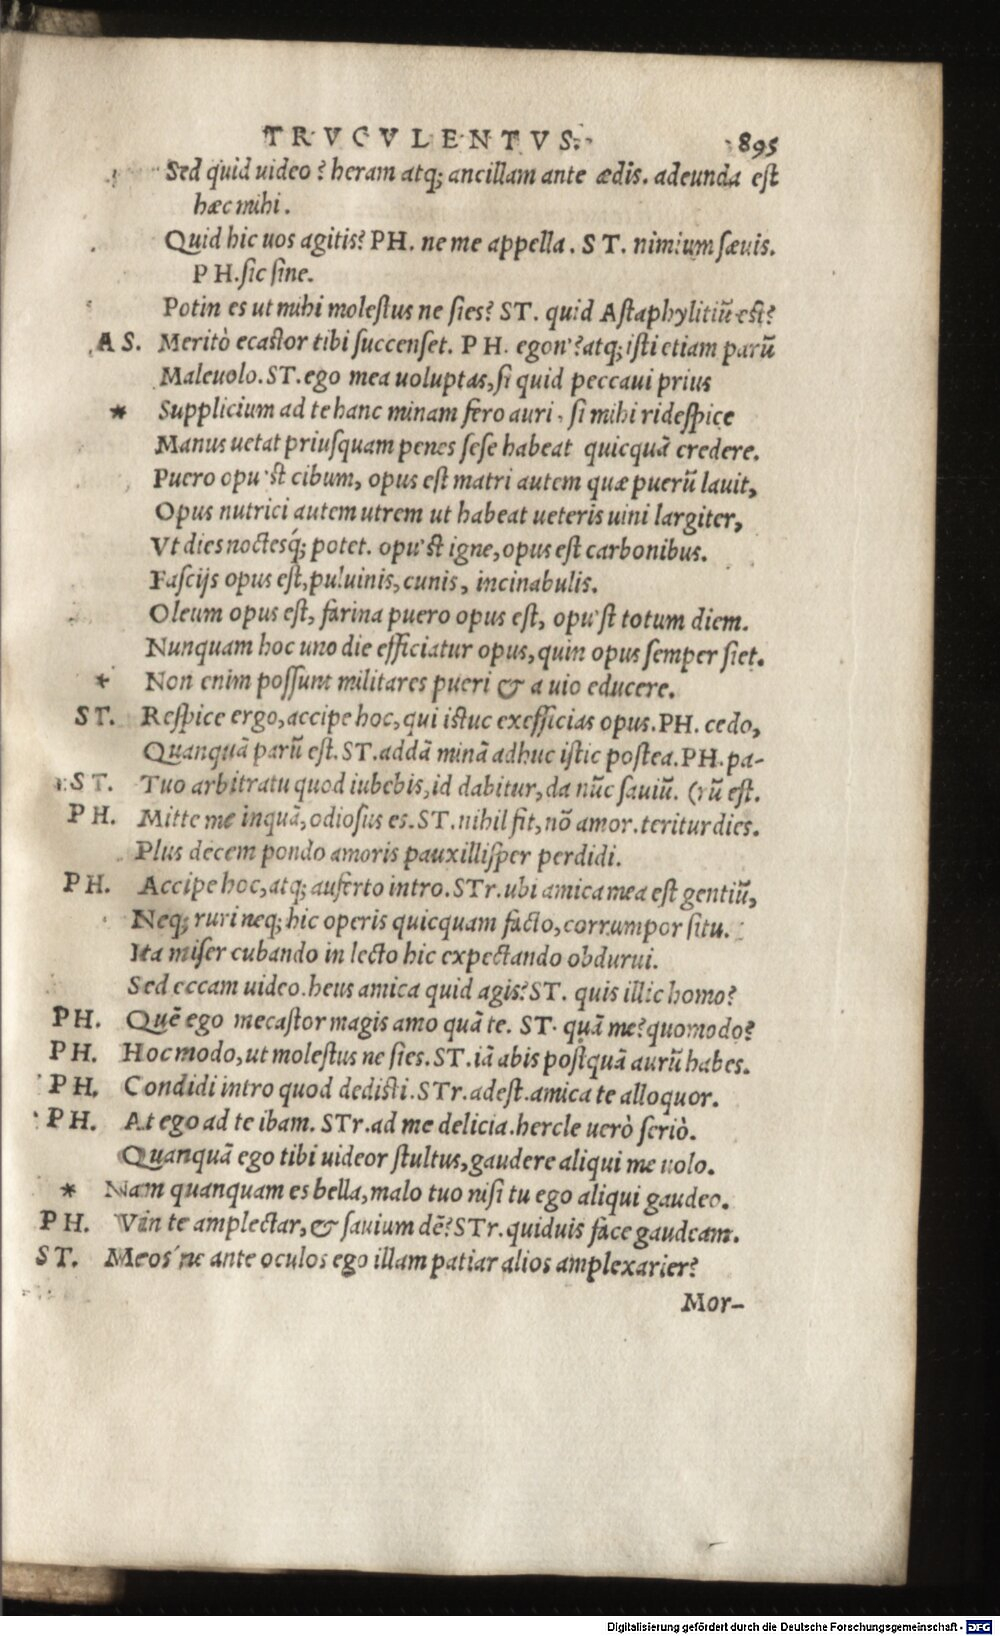 TRVCVLENTVS. 895
Sed quid uideo? heram atq; ancillam ante ædis. adeunda est
hæc mihi.
Quid hic uos agitis? PH. ne me appella. ST. nimium sæuis.
PH. sic sine.
Potin es ut mihi molestus ne sies? ST. quid Astaphylitiū est?
AS. Meritò ecastor tibi succenset. PH. egon'? atq; isti etiam parū
Maleuolo. ST. ego mea uoluptas, si quid peccaui prius
* Supplicium ad te hanc minam fero auri, si mihi ridespice
Manus uetat priusquam penes sese habeat quicquā credere.
Puero opu'st cibum, opus est matri autem quæ puerū lauit,
Opus nutrici autem utrem ut habeat ueteris uini largiter,
Vt dies noctesq; potet. opu'st igne, opus est carbonibus.
Fascijs opus est, puluinis, cunis, incinabulis.
Oleum opus est, farina puero opus est, opu'st totum diem.
Nunquam hoc uno die efficiatur opus, quin opus semper siet.
* Non enim possunt militares pueri & a uio educere.
ST. Respice ergo, accipe hoc, qui istuc exefficias opus. PH. cedo,
Quanquā parū est. ST. addā minā adhuc istic postea. PH. pa-
ST. Tuo arbitratu quod iubebis, id dabitur, da nūc sauiū. (rū est.
PH. Mitte me inquā, odiosus es. ST. nihil fit, nō amor. teritur dies.
Plus decem pondo amoris pauxillisper perdidi.
PH. Accipe hoc, atq; auferto intro. STr. ubi amica mea est gentiū,
Neq; ruri neq; hic operis quicquam facto, corrumpor situ.
Ita miser cubando in lecto hic expectando obdurui.
Sed eccam uideo. heus amica quid agis? ST. quis illic homo?
PH. Quē ego mecastor magis amo quā te. ST. quā me? quomodo?
PH. Hoc modo, ut molestus ne sies. ST. iā abis postquā aurū habes.
PH. Condidi intro quod dedisti. STr. adest. amica te alloquor.
PH. At ego ad te ibam. STr. ad me delicia. hercle uerò seriò.
Quanquā ego tibi uideor stultus, gaudere aliqui me uolo.
* Nam quanquam es bella, malo tuo nisi tu ego aliqui gaudeo.
PH. Vin te amplectar, & sauium dē? STr. quiduis face gaudeam.
ST. Meos'ne ante oculos ego illam patiar alios amplexarier?
Mor-
Digitalisierung gefördert durch die Deutsche Forschungsgemeinschaft - DFG